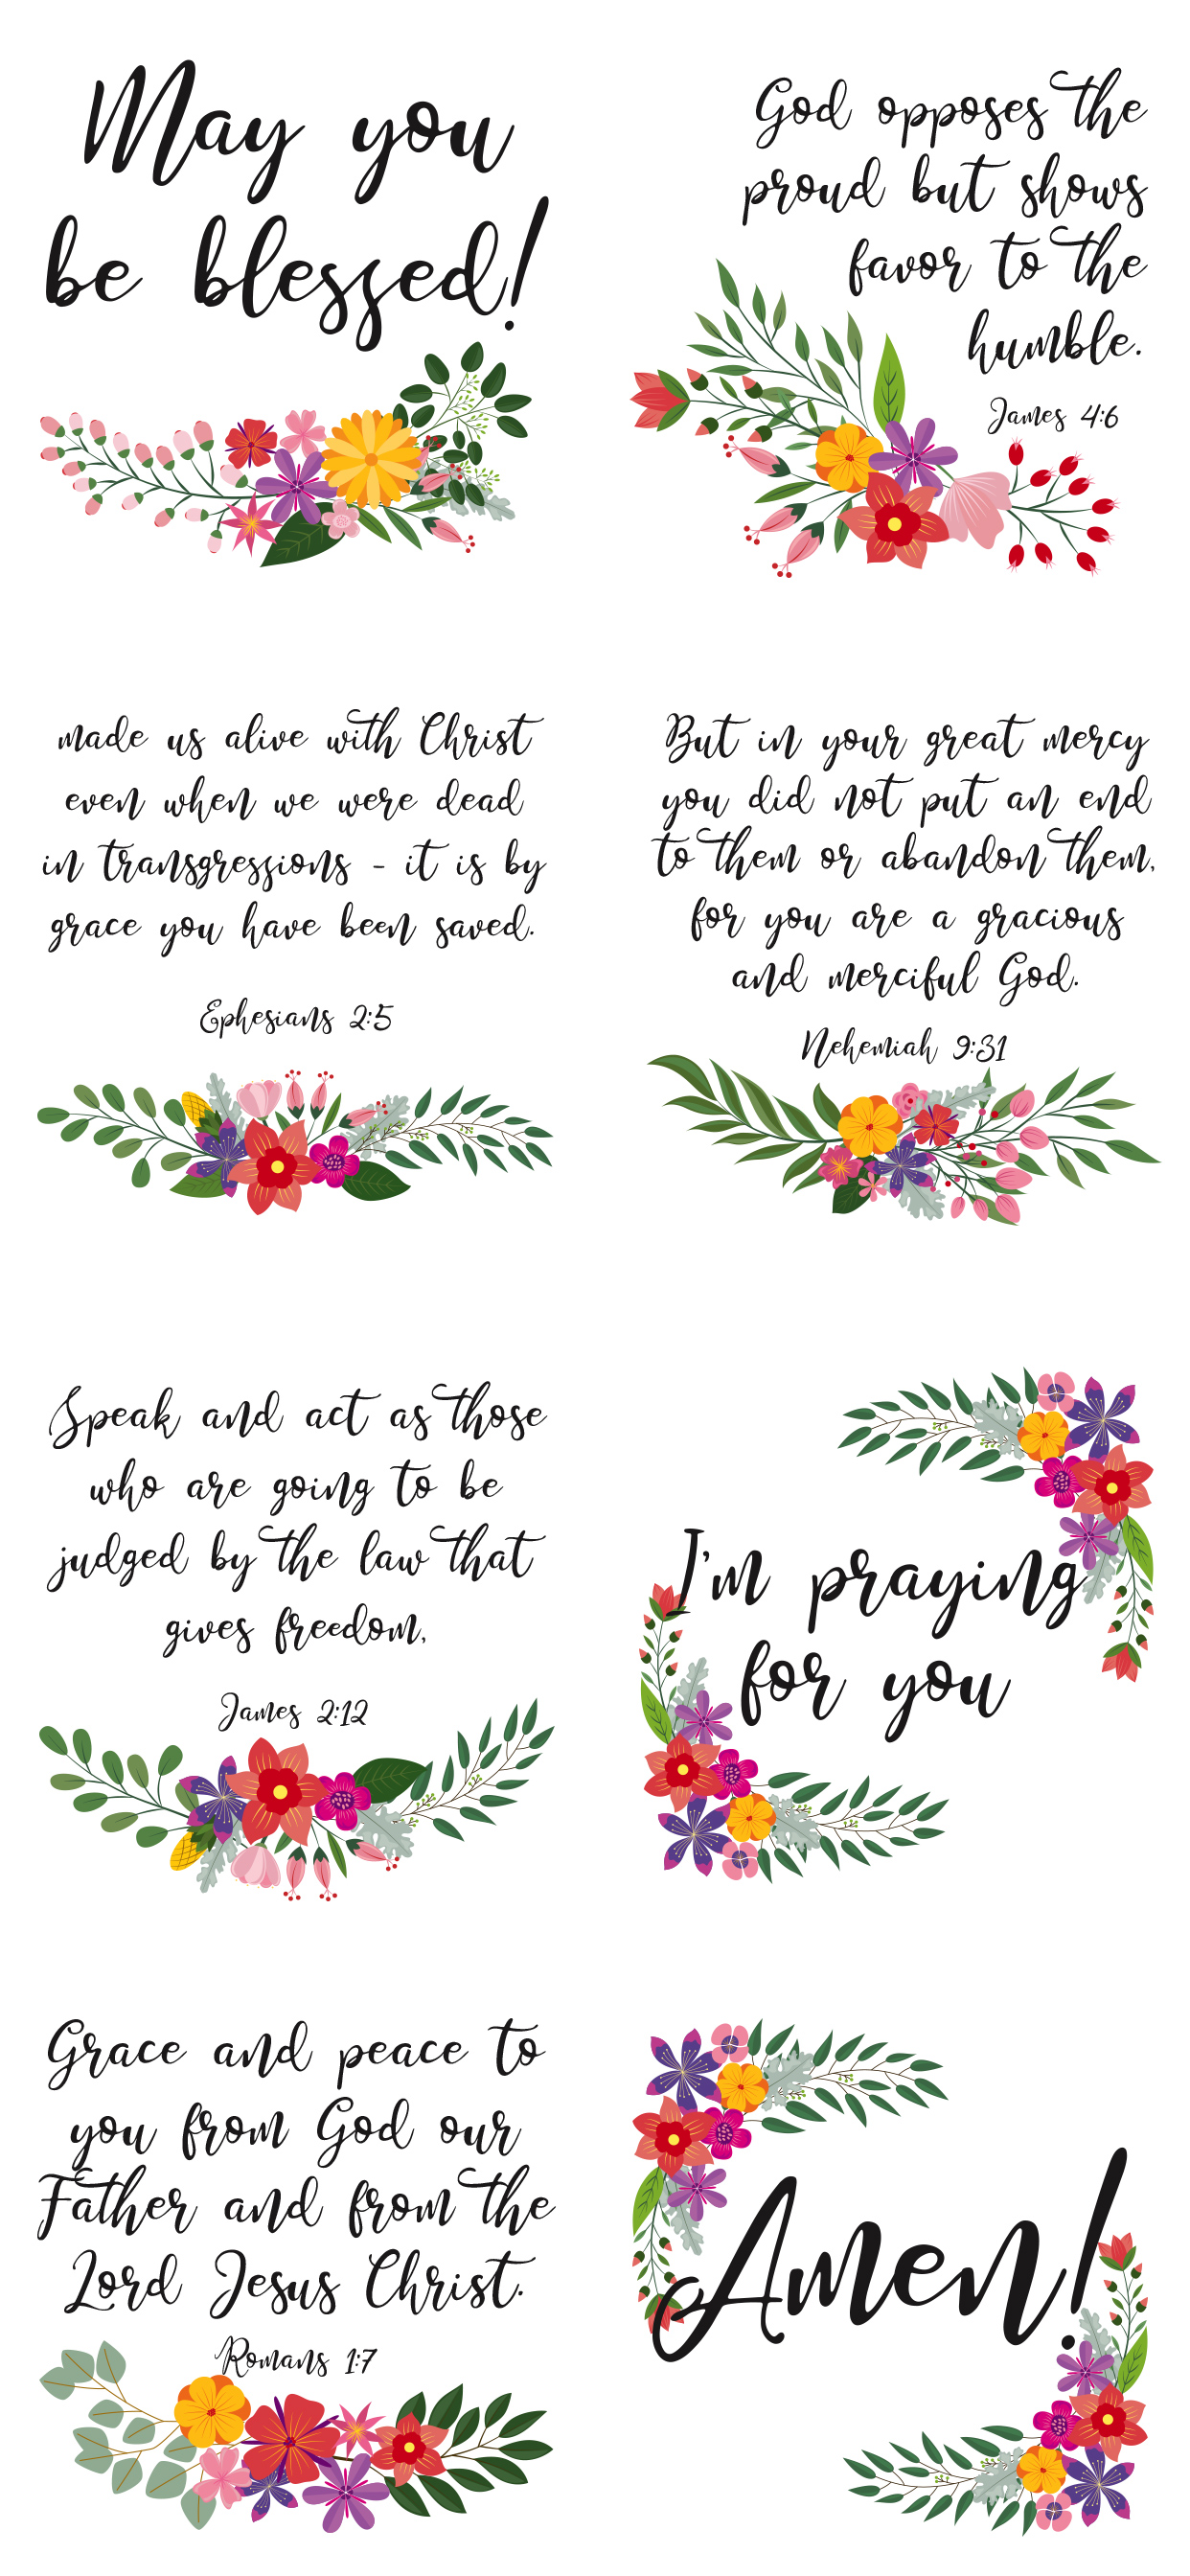 May you
be blessed!
God opposes the
proud but shows
favor to the
humble.
James 4:6
made us alive with Christ
even when we were dead
in transgressions - it is by
grace you have been saved.
Ephesians 2:5
But in your great mercy
you did not put an end
to them or abandon them,
for you are a gracious
and merciful God.
Nehemiah 9:31
Speak and act as those
who are going to be
judged by the law that
gives freedom,
James 2:12
I'm praying
for you
Grace and peace to
you from God our
Father and from the
Lord Jesus Christ.
Romans 1:7
Amen!